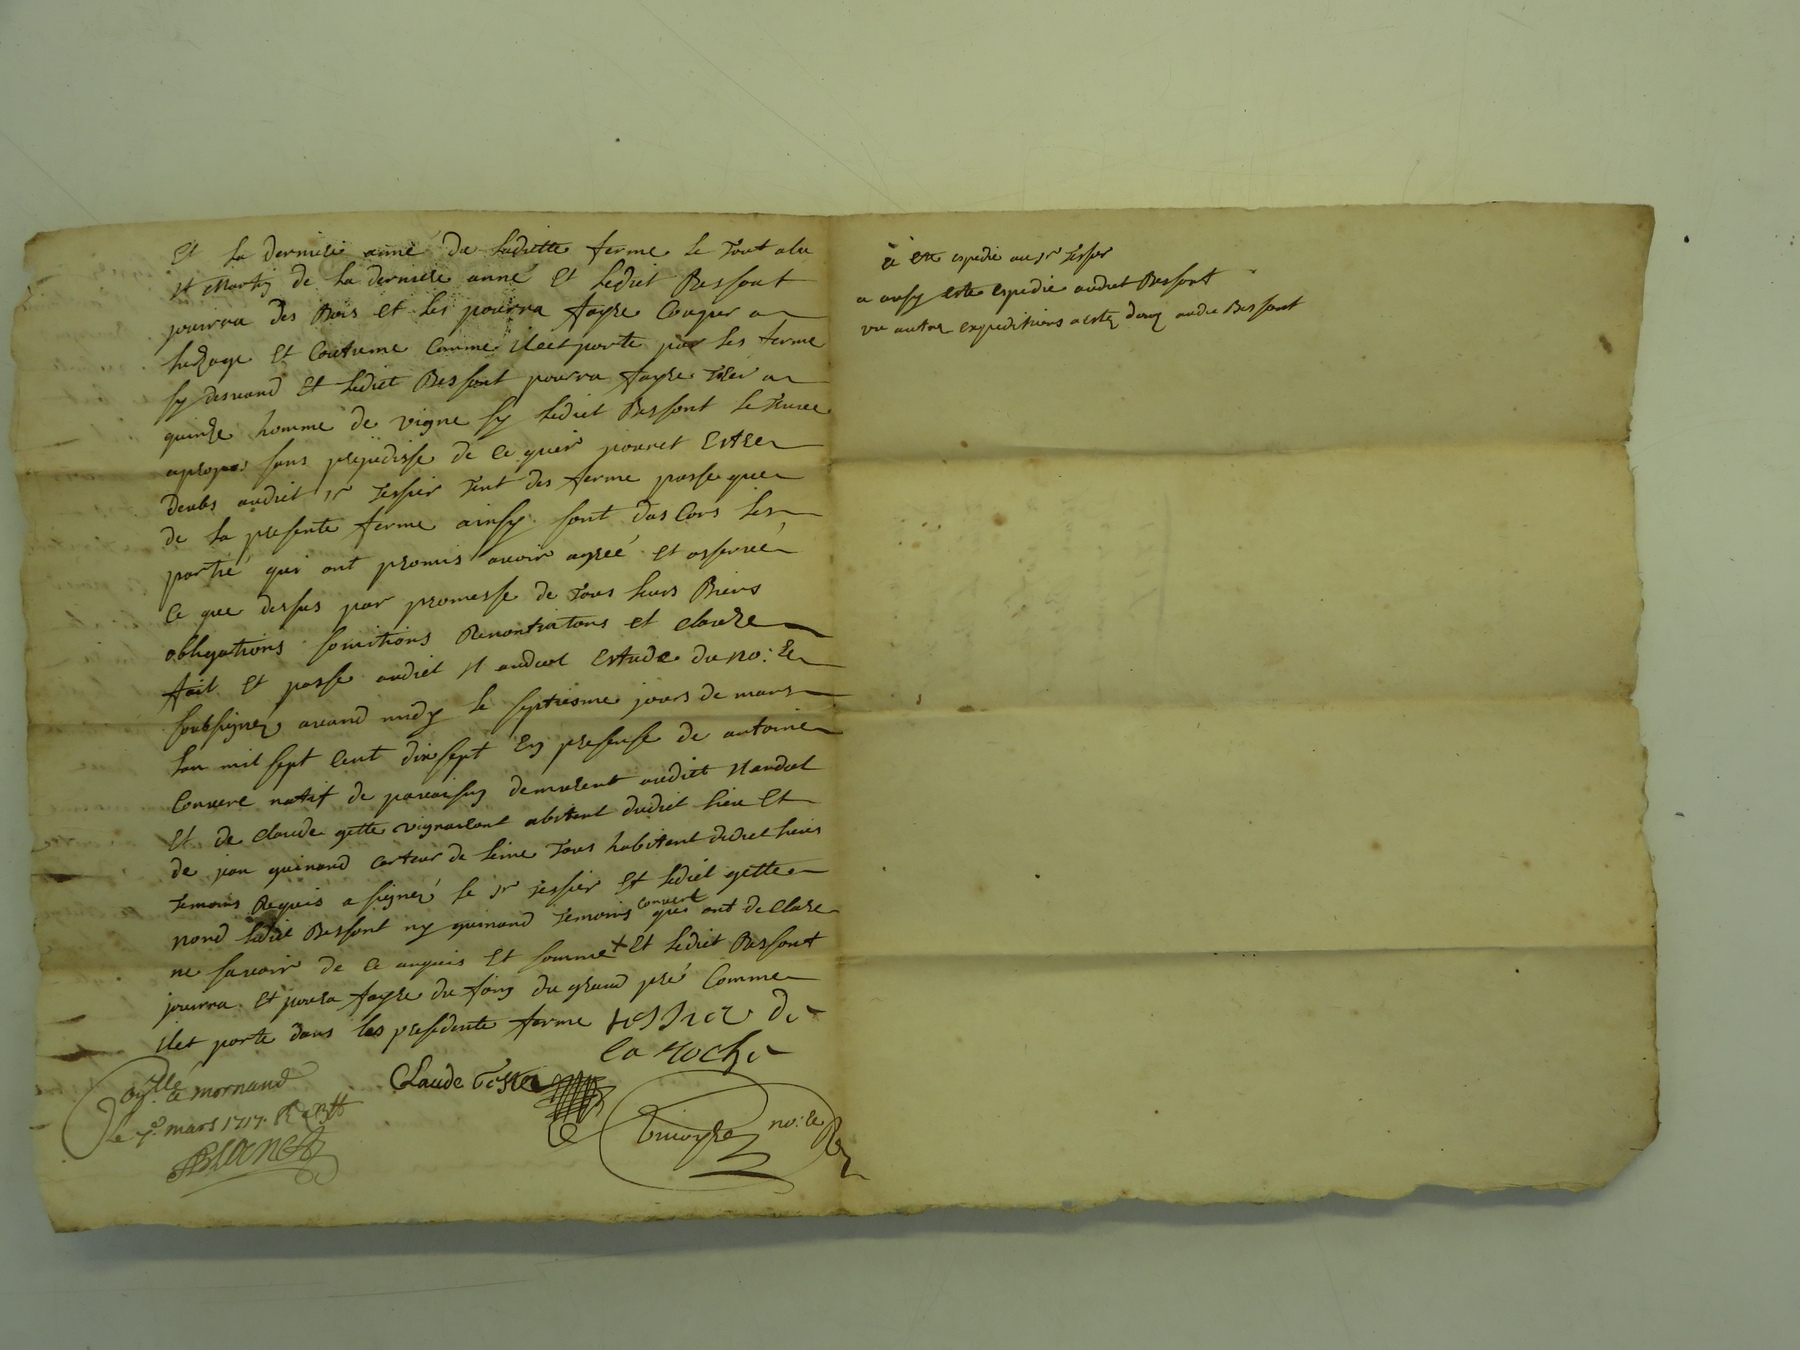 Et la derniere anné de ladiette ferme le tout a la
st Martin de la derniere anné Et lediet Bessont
jouirra des Bois et les pourra fayre Couper a
luzage Et Coutume Comme il est porté par les ferme
sy desvand Et lediet Bessont pourra fayre
quinze homme de vigne sy lediet Bessont le treuve
apropos sans prejudisse de Ce quir pouret Estre
deubs audiet sr Tessier tent des ferme passe que
de la presente ferme ainsy sont das Cors les
partié qui ont promis avoir agreé et osservé
Ce que dessus par promesse de tous leurs Biens
obligations soumitions Renontiations et clauze
fait Et passé audiet st andeol Estude du no: Re
soubsigné avand midy le septiesme jours de mars
lan mil sept Cent dix sept En presense de antoine
Convere natif de demurent audiet st andeol
Et de claude gette vigneront abitent dudiet lieu Et
de jean guinand Carteur de leine tous habitent dudiet lieu
temoins Requis a signé le sr tessier Et lediet gette
nond lediet Bessont ny guinand temoins convert qui ont declare
ne savoir de Ce anquis Et sommé + Et lediet Bessont
jouirra Et poura fayre du foing du grand pré Comme
il et porté dans les presedente ferme tessier de
la roche
Claude Gette
a mornand
le 7e mars 1717
Blanc
no: Re
a été expedie au sr tessier
a ausy esté expedié audiet Bessont
un autre expeditions a esté donné audit Bessont